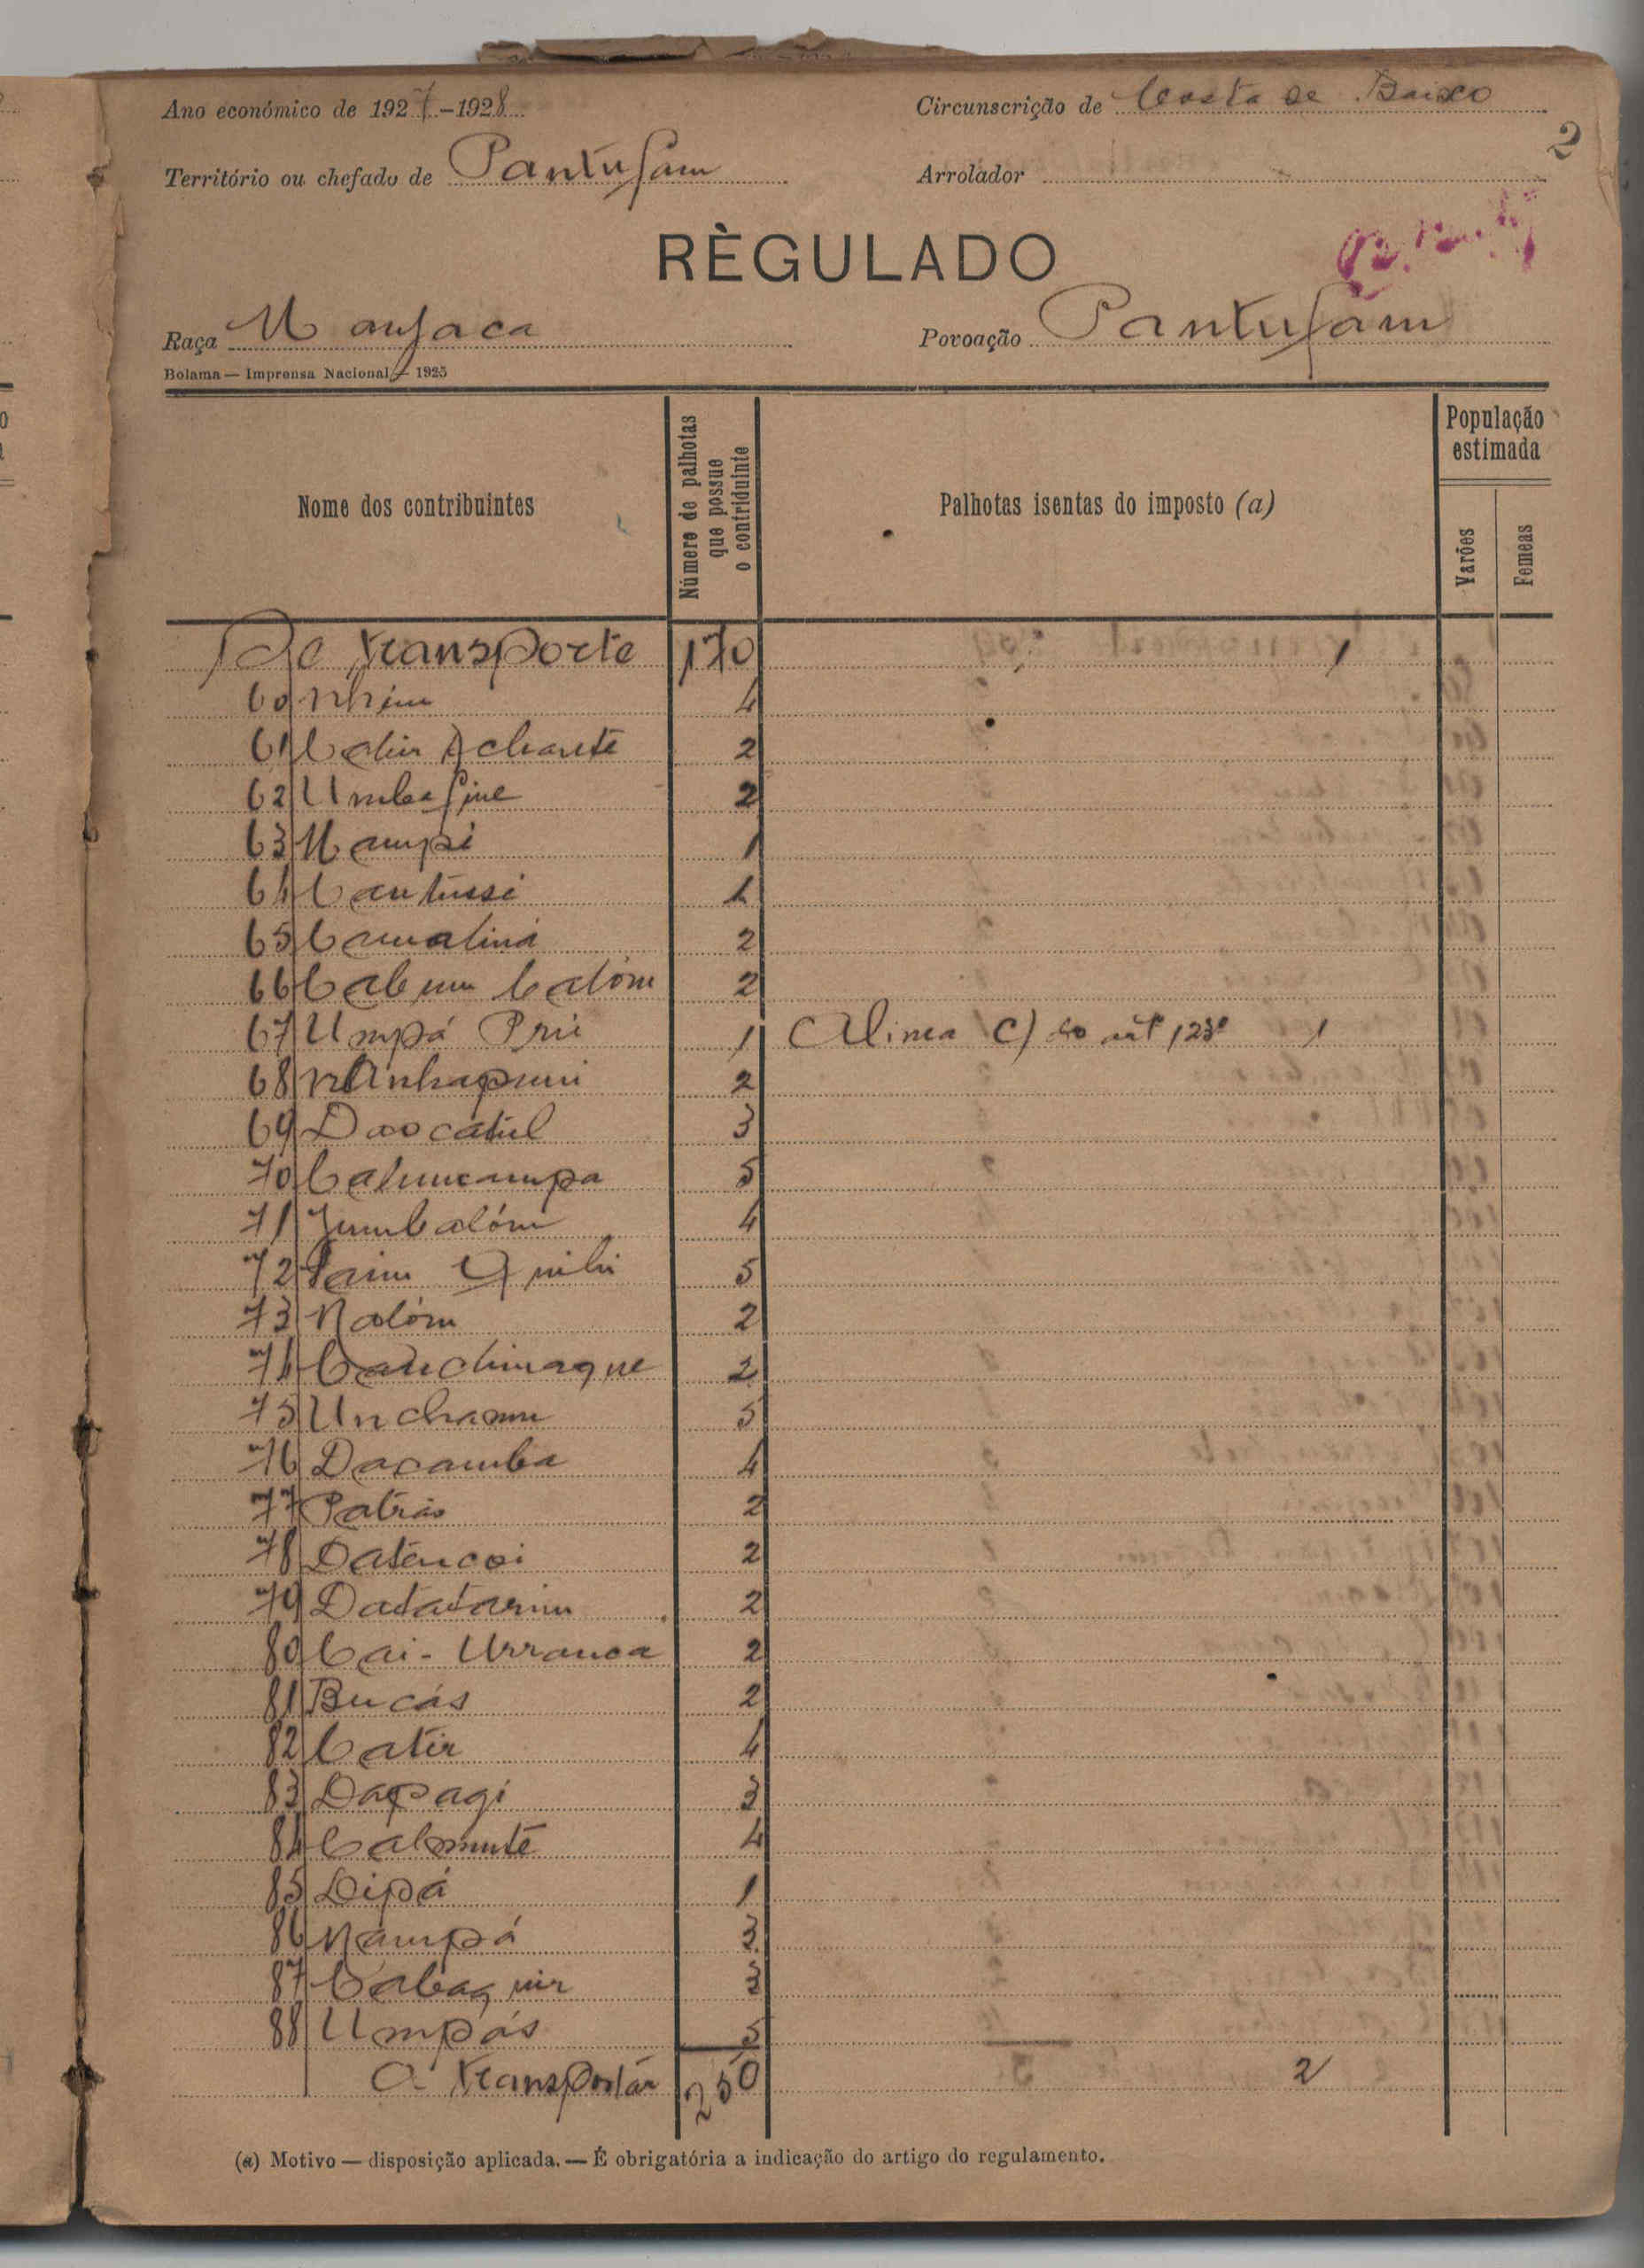 Ano económico de 1927-1928
Circunscrição de Costa de Baixo
2
Território ou chefado de Pantufam
Arrolador
RÈGULADO
Raça Manjaca
Povoação Pantufam
Bolama — Imprensa Nacional — 1925
Nome dos contribuintes
Número de palhotas que possue o contriduinte
Palhotas isentas do imposto (a)
População estimada
Varões
Femeas
De transporte 170 1
60 Nhim 4
61 2
62 2
63 Mampi 1
64 Cantussi 1
65 Camatiná 2
66 Cabum Catóm 2
67 Umpá 1 Alinea C) do artº 123º 1
68 2
69 3
70 5
71 Jumbatóm 4
72 5
73 Natóm 2
74 2
75 Unchamm 5
76 Dacamba 4
77 Patrás 2
78 Datencoi 2
79 Datatarim 2
80 Cai-Urranca 2
81 Bucás 2
82 Catir 4
83 Dapagi 3
84 4
85 Dipá 1
86 Nampá 3
87 Cabaquir 3
88 Umpás 5
A transportár 250 2
(a) Motivo — disposição aplicada. — É obrigatória a indicação do artigo do regulamento.